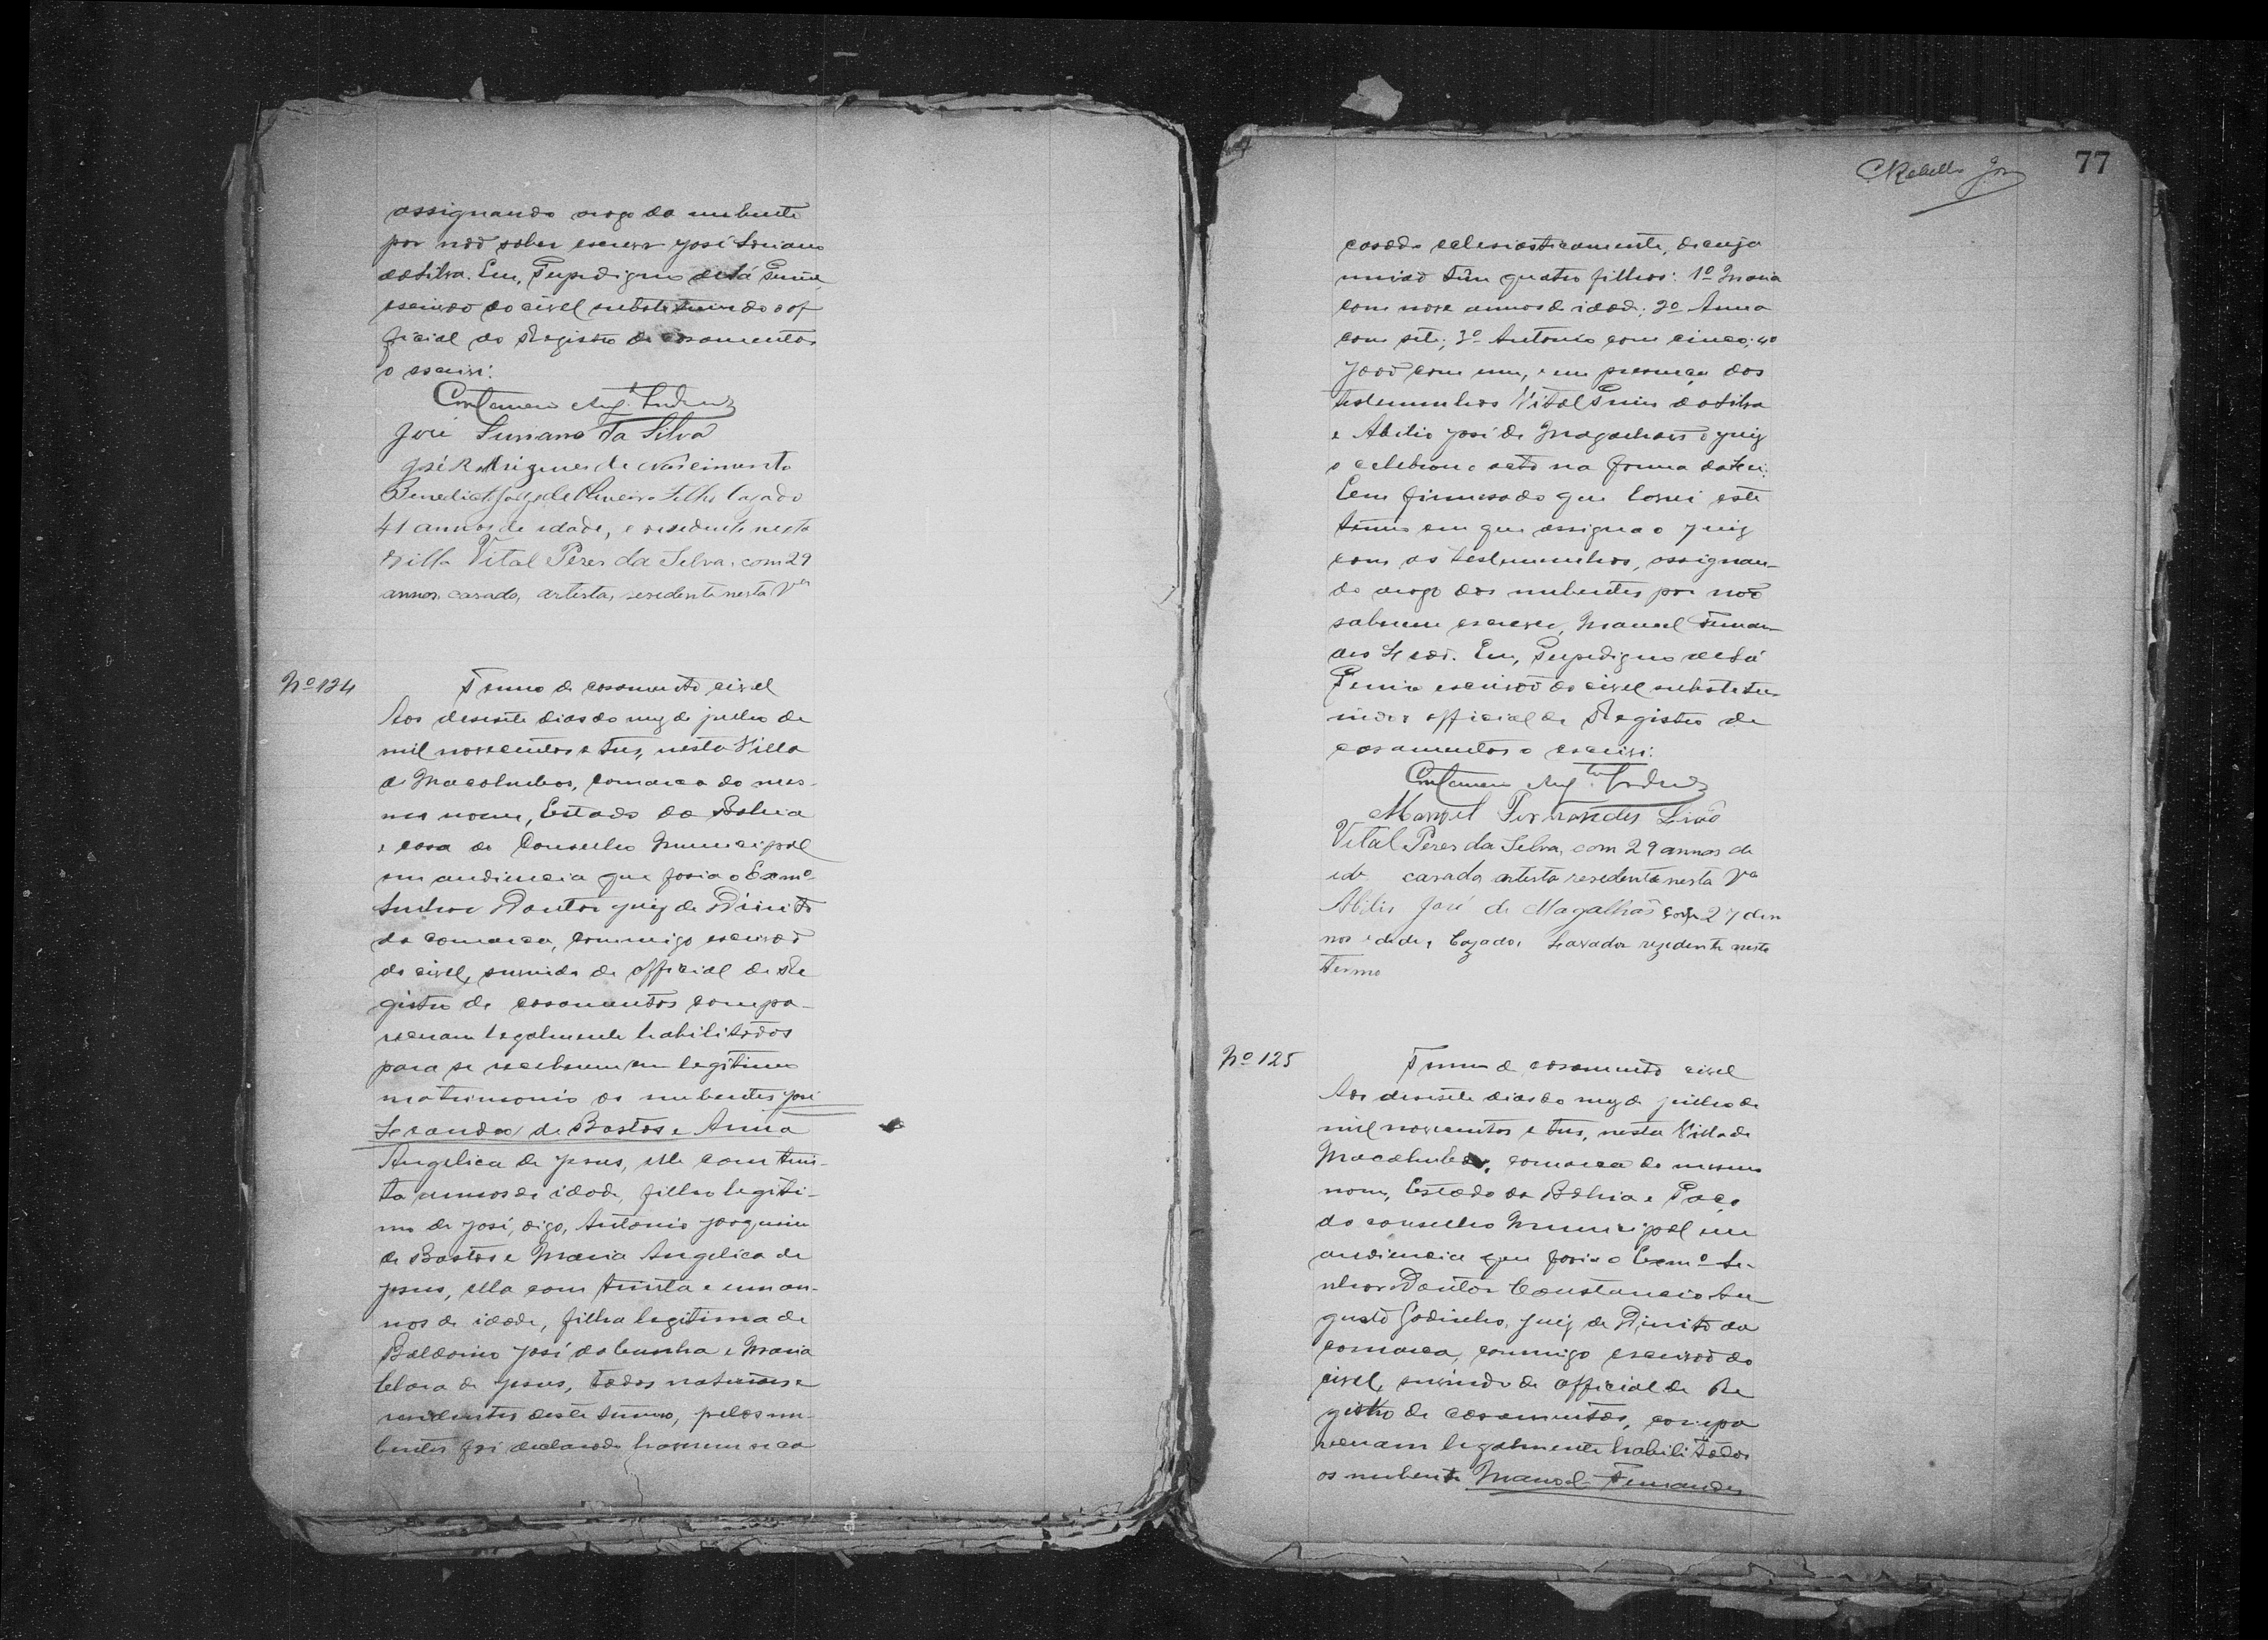 assignando arogo da nubente
por não saber escrever José Suriano
da Silva. Eu, de Sá
escrivão do civel substituindo o of
ficial do Registro de casamentos
o escrivi.
José Suriano da Silva
José Rodrigues do Nascimento
Benedicto Filho Cazado
41 annos de idade, e residente nesta
Villa Vital Peres da Silva, com 29
annos, casado, artista, resedente nesta Vª
Nº 124
Termo de casamento civel
Aos desesete dias do mez de julho de
mil novecentos e tres, nesta Villa
de Macahubas, comarca do mes-
mo nome, Estado da Bahia
e casa do Conselho Municipal
em audiencia que fasia o Exmº
Senhor Doutor Juiz de Direito
da comarca, commigo escrivão
do civel, servindo de official de Re
gistro de casamentos compa-
receram legalmente habilitados
para se receberem em legitimo
matrimonio os nubentes José
de Bastos e Anna
Angelica de Jesus, elle com trin-
ta annos de idade, filho legiti-
mo de José, digo, Antonio Joaquim
de Bastos e Maria Angelica de
Jesus, ella com trinta e um an-
nos de idade, filha legitima de
Baldoino José da Cunha e Maria
Clara de Jesus, todos naturaes e
residentes deste termo, pelos nu-
bentes foi declarado haverem se ca
77
casado eclesiasticamente, de cuja
união têm quatro filhos: 1º Maria
com nove annos de idade; 2º Anna
com sete; 3º Antonio com cinco; 4º
João com um, e em presença das
testemunhas Vital Peres da Silva
e Abilio José de Magalhães o Juiz
o celebrou o acto na forma da Lei.
Em firmesa do que lavrei este
termo em que assigna o Juiz
com as testemunhas, assignan-
do arogo dos nubentes por não
saberem escrever, Manoel Fernan-
des Leão. Eu, de Sá
escrivão do civel substetu-
indo o official de Registro de
casamentos o escrivi.
Manoel Fernandes Leão
Vital Peres da Silva, com 29 annos de
ide casado artista resedente nesta Vª
Abilio José de Magalhãs com 27 den
nos idade, Cazado, Lavador rezidente neste
Termo
Nº 125
Termo de casamento civel
Aos desesete dias do mez de julho de
mil novecentos e tres, nesta Villa de
Macahubas, comarca do mesmo
nome, Estado da Bahia e Paço
do conselho Municipal em
audiencia que fasia o Exmº Se-
nhor Doutor Constancio Au
gusto Godinho, Juiz de Direito da
comarca, commigo escrivão do
civel, servindo de official de Re
gistro de casamentos, compa
receram legalmente habilitados
os nubente Manoel Fernandes